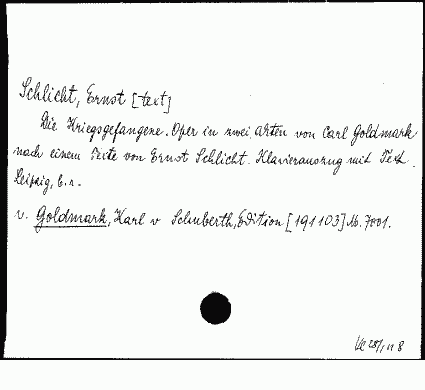 Schlicht, Ernst [text]
Die Kriegsgefangene. Oper in zwei Akten von Carl Goldmark
nach einem Texte von Ernst Schlicht. Klavierauszug mit Text.
Leipzig,
v. Goldmark, Karl v Schuberth, Edition [191103] No. 7001.